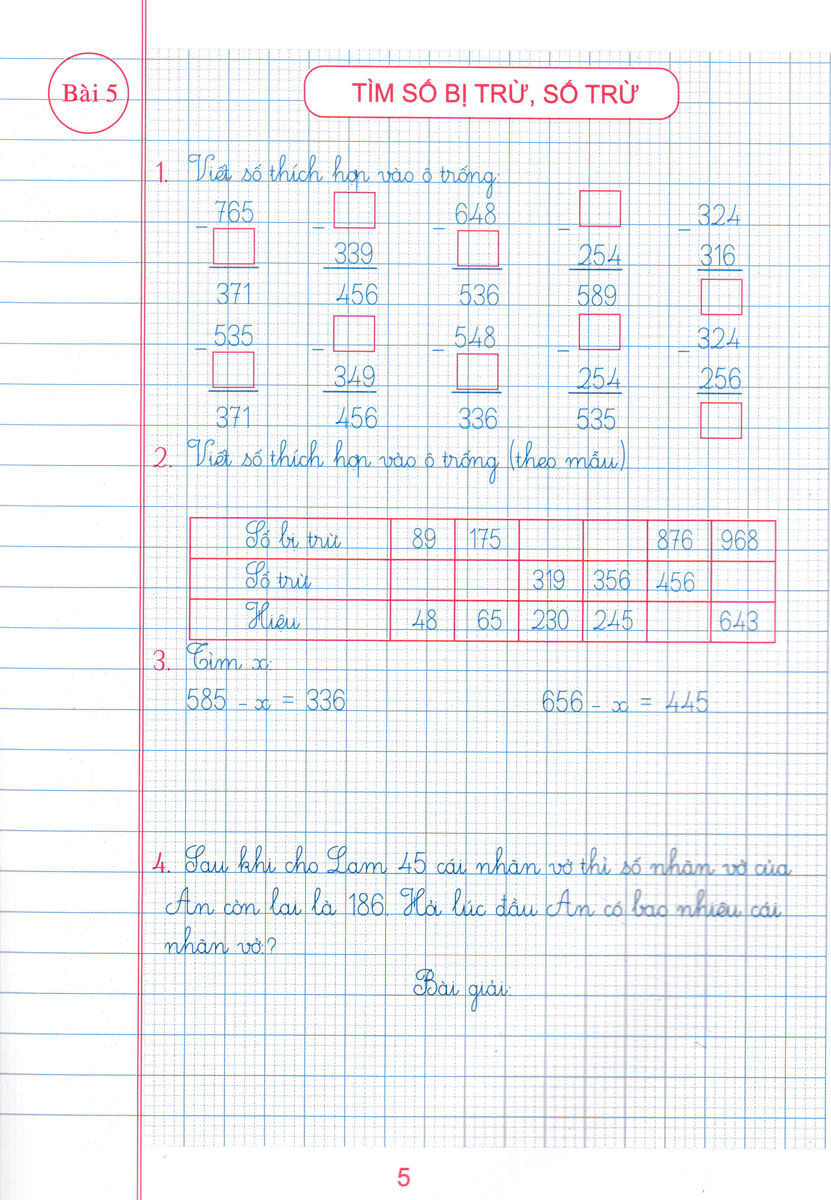 Bài 5
TÌM SỐ BỊ TRỪ, SỐ TRỪ
1. Viết số thích hợp vào ô trống:
765 648 324
339 254 316
371 456 536 589
535 548 324
349 254 256
371 456 336 535
2. Viết số thích hợp vào ô trống (theo mẫu)
Số bị trừ 89 175 876 968
Số trừ 319 356 456
Hiệu 48 65 230 245 643
3. Tìm x:
585 - x = 336 656 - x = 445
4. Sau khi cho Lam 45 cái nhãn vở thì số nhãn vở của
An còn lại là 186. Hỏi lúc đầu An có bao nhiêu cái
nhãn vở?
Bài giải:
5